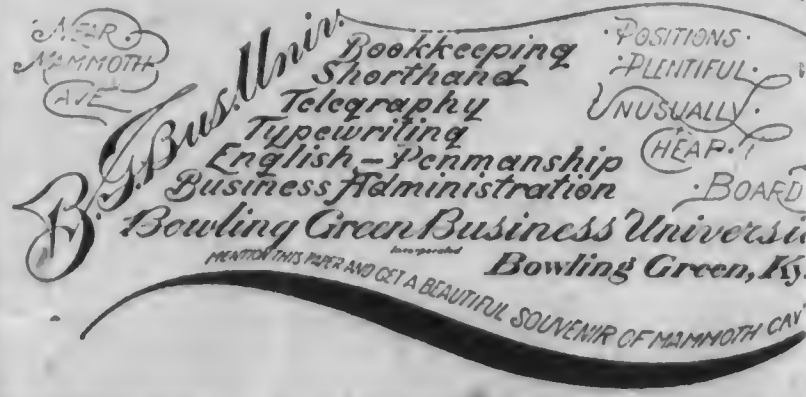 NEAR
MAMMOTH
AVE
B. G. Bus. Univ.
Bookkeeping
Shorthand
Telegraphy
Typewriting
English - Penmanship
Business Administration
POSITIONS
PLENTIFUL
UNUSUALLY
CHEAP
BOARD
Bowling Green Business Universi
Incorporated
Bowling Green, Ky.
MENTION THIS PAPER AND GET A BEAUTIFUL SOUVENIR OF MAMMOTH CAV